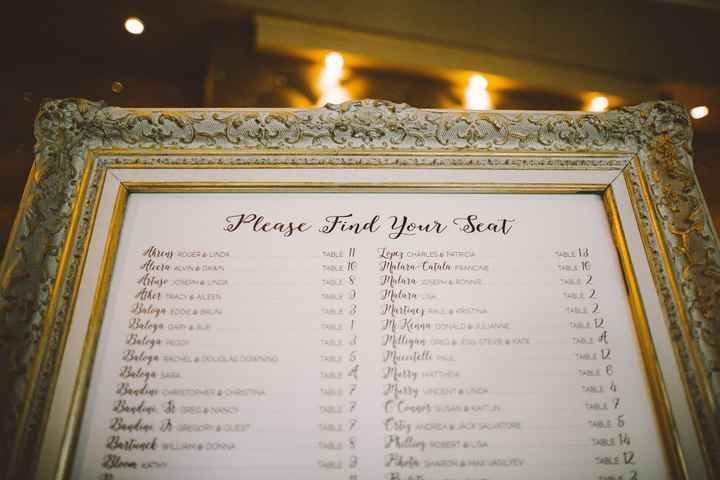 Please Find Your Seat
Ahrens ROGER & LINDA TABLE 11
Alvera ALVIN & DAWN TABLE 10
Artuso JOSEPH & LINDA TABLE 8
Asher TRACY & AILEEN TABLE 9
Baloga EDDIE & BRUNI TABLE 3
Baloga GARY & SUE TABLE 1
Baloga PEGGY TABLE 3
Baloga RACHEL & DOUGLAS DOWNING TABLE 5
Baloga SARA TABLE A
Bandini CHRISTOPHER & CHRISTINA TABLE 7
Bandini, Sr GREG & NANCY TABLE 7
Bandini, Jr GREGORY & GUEST TABLE 7
Bartunek WILLIAM & DONNA TABLE 8
Bloom KATHY TABLE 9
Lopez CHARLES & PATRICIA TABLE 13
Malara-Catala FRANCINE TABLE 10
Malara JOSEPH & RONNIE TABLE 2
Malara LISA TABLE 2
Martinez RAUL & KRISTINA TABLE 2
McKenna DONALD & JULIANNE TABLE 12
Milligan GREG & JESS, STEVE & KATE TABLE A
Muccitelli PAUL TABLE 12
Murry MATTHEW TABLE 6
Murry VINCENT & LINDA TABLE 4
O'Connor SUSAN & KAITLIN TABLE 7
Ortiz ANDREA & JACK SALVATORE TABLE 5
Phillips ROBERT & LISA TABLE 14
SHARON & MAX VASILYEV TABLE 12